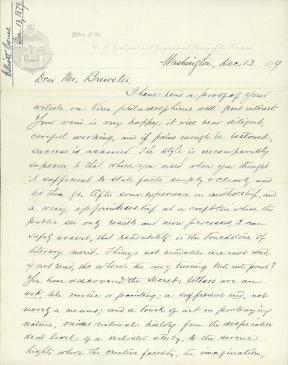 Elliott Coues
Dec. 13, 1879.
Office of the
U. S. Geological and Geographical Survey of the Territories.
Washington, Dec. 13 1879
Dear Mr. Brewster,
I have read a proof of your
article on Vireo philadelphicus with great interest.
Your vein is very happy; it will bear diligent,
careful working, and if pains enough be bestowed,
success is assured. The style is incomparably
superior to that which you used when you thought
it sufficient to state facts simply & clearly and
let them go. After some experience in authorship, and
a weary apprenticeship at a craft in which the
public see only results and never processes, I can
safely assert, that readability is the touchstone of
literary merit. Things not readable are not read,
& if not read, where is the use
You have discovered the secret. Letters are an
art, like music or painting; a supreme end, not
merely a means; and a touch of art in portraying
nature, raises natural history from the despicable
dead level of a study, to the serene
heights where the creative faculty, the imagination,